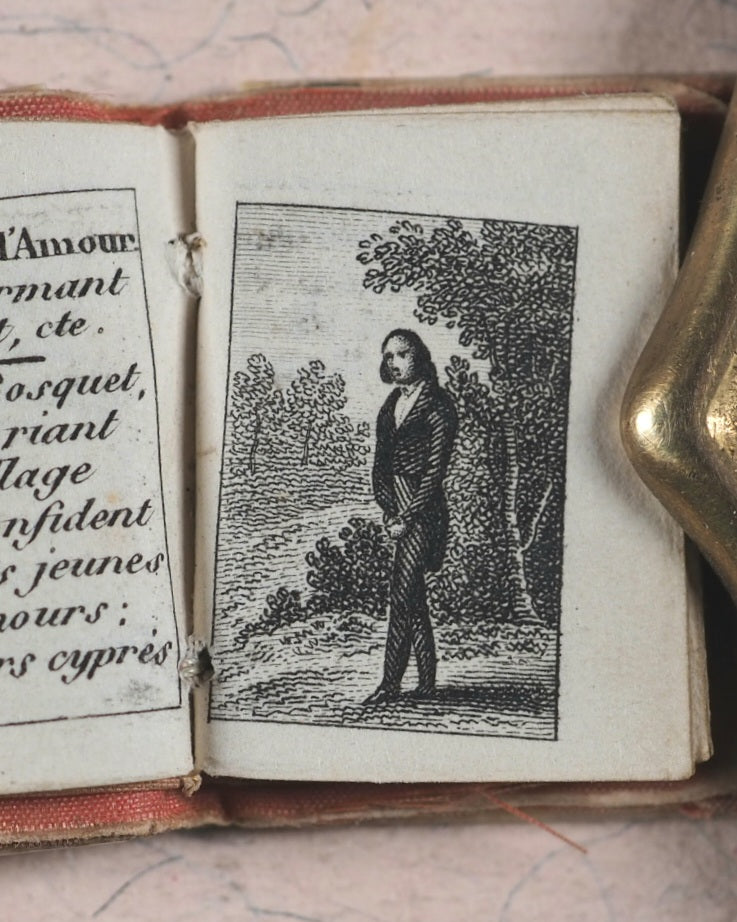 l'Amour.
rmant
t, cte.
osquet,
riant
llage
nfident
s jeunes
mours:
rs cyprés